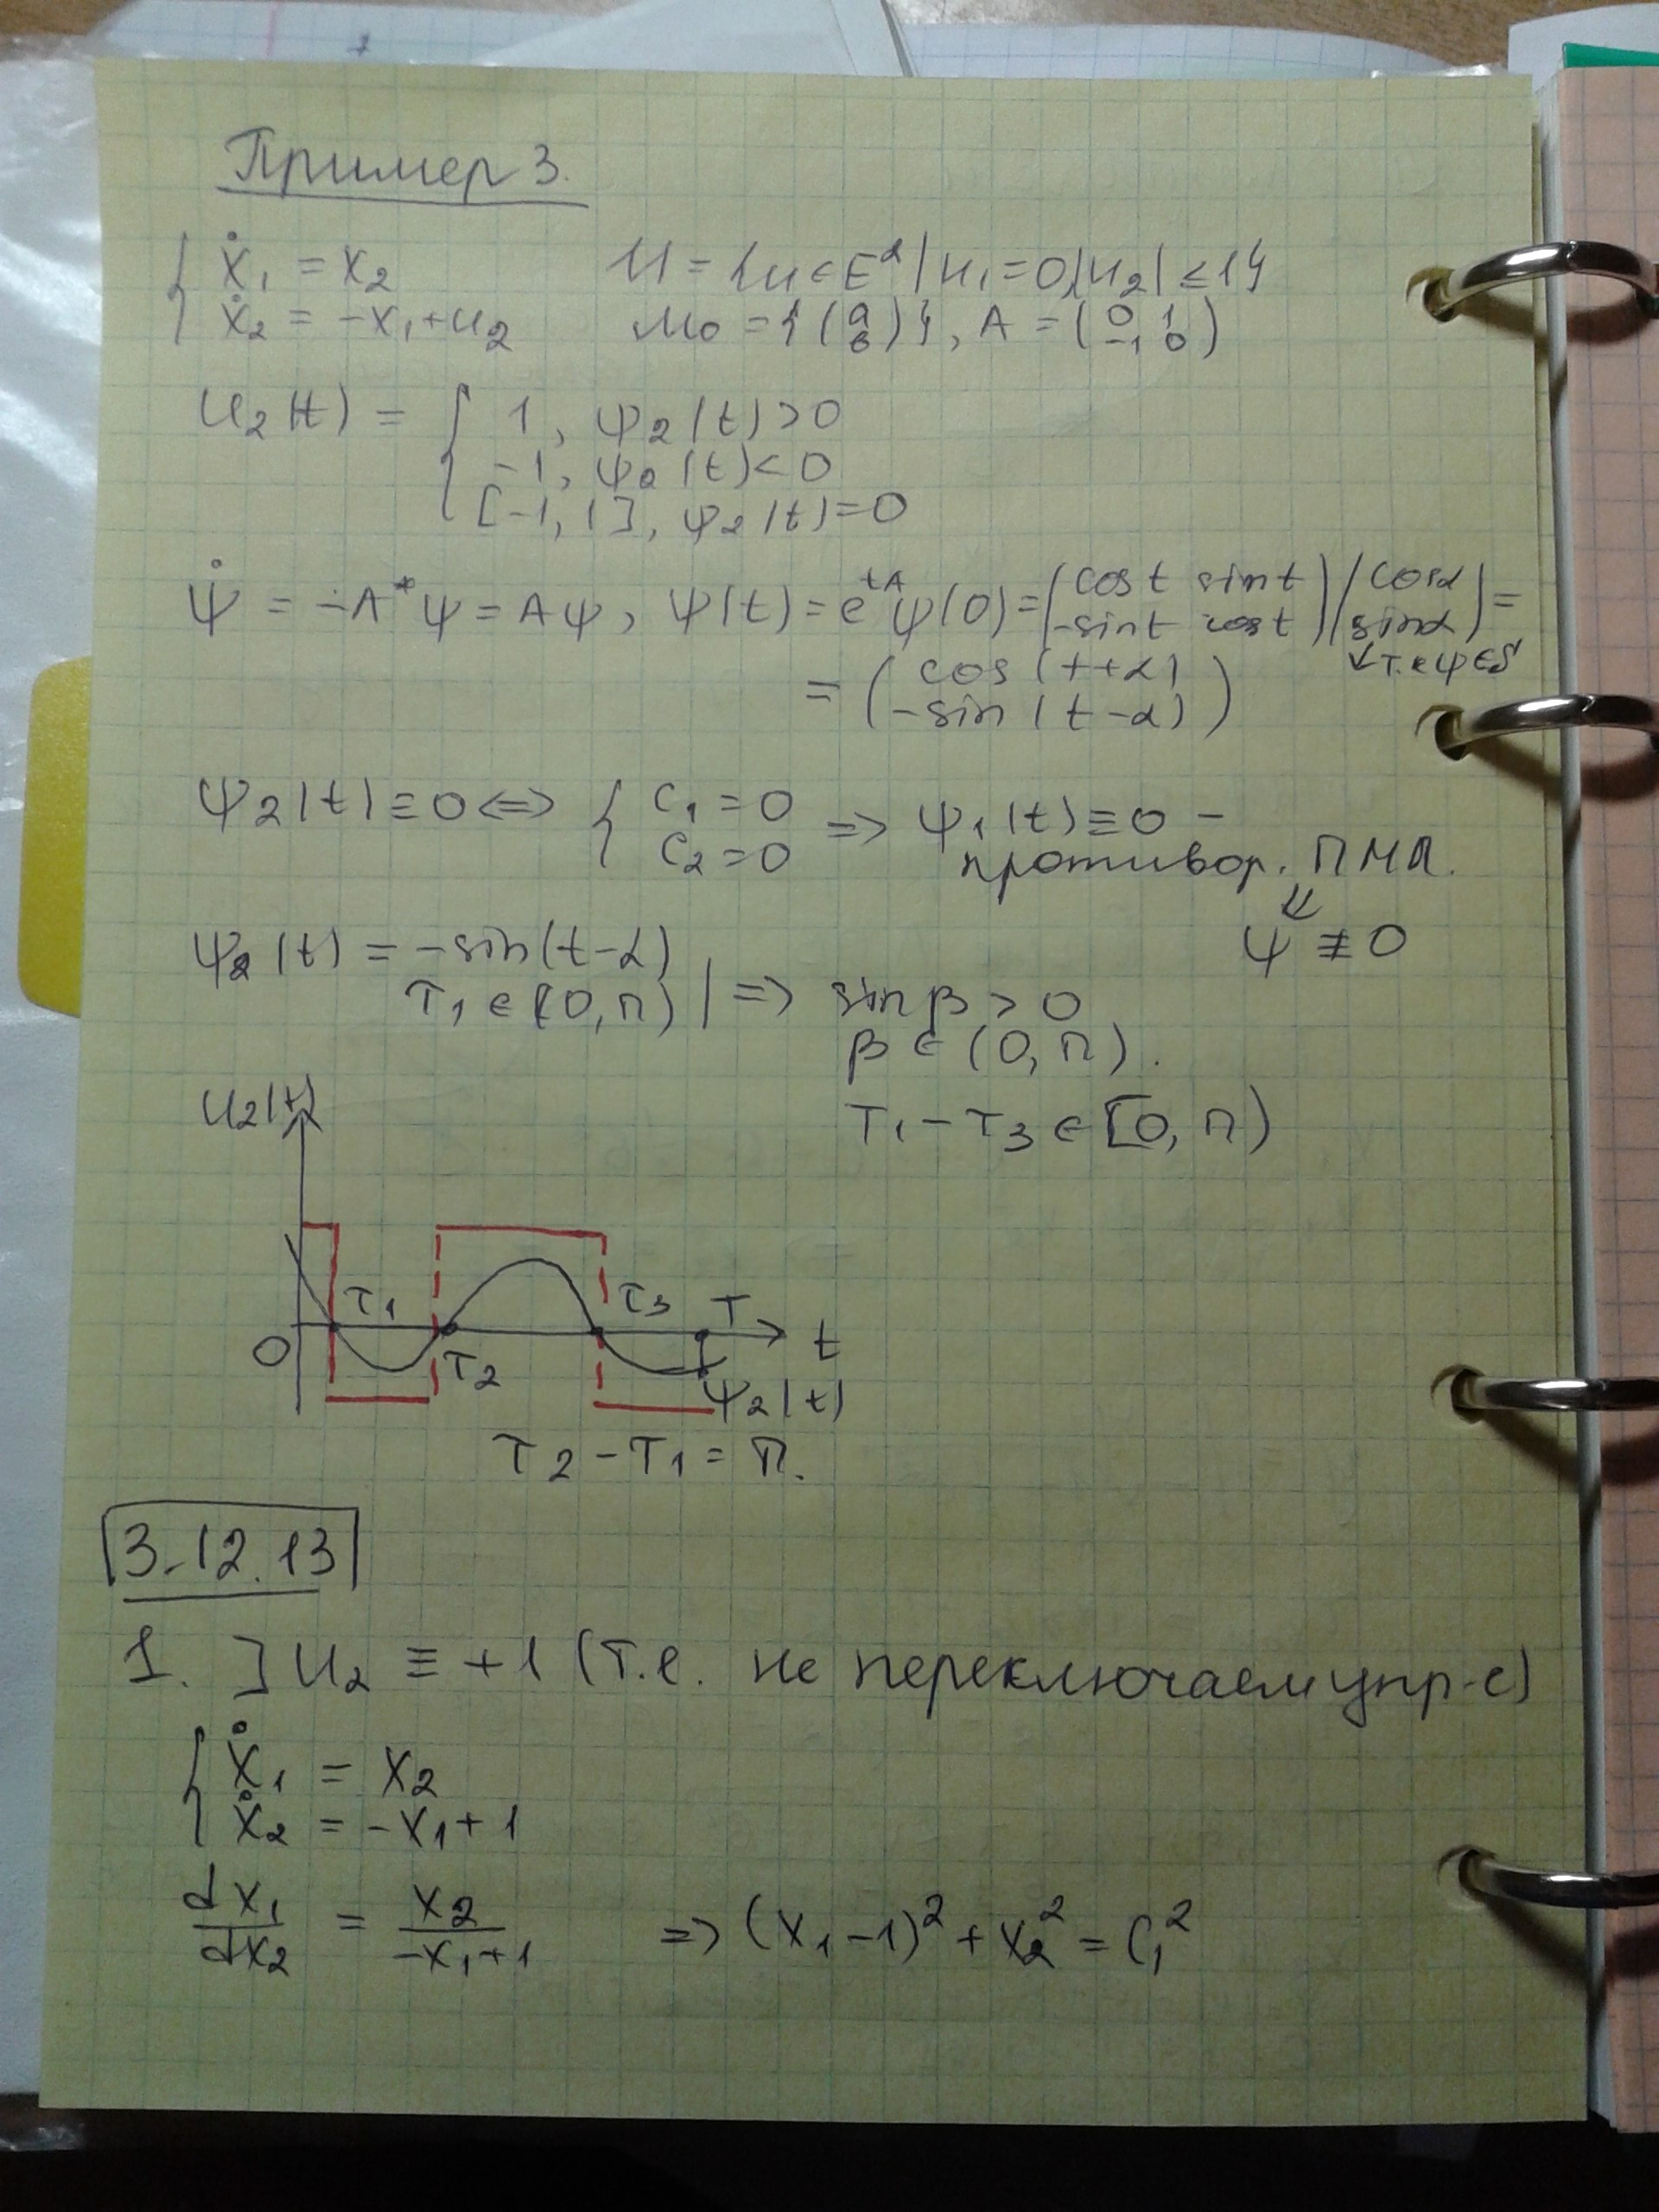 Пример 3.
{ ẋ₁ = x₂    U = {u ∈ E² | u₁ = 0, |u₂| ≤ 1}
{ ẋ₂ = -x₁ + u₂    M₀ = {(a b)}, A = (0 1 -1 0)
u₂(t) = { 1, ψ₂(t) > 0
-1, ψ₂(t) < 0
[-1, 1], ψ₂(t) = 0
ψ̇ = -A*ψ = Aψ, ψ(t) = e^{tA} ψ(0) = (cos t sin t -sin t cos t)(cos α sin α) =
т.к ψ ∈ S
= (cos(t+α) -sin(t-α))
ψ₂(t) ≡ 0 <=> { c₁ = 0 c₂ = 0 => ψ₁(t) ≡ 0 -
противор. ПМП.
⇓
ψ ≢ 0
ψ₂(t) = -sin(t-α)
τ₁ ∈ [0, π) | => sin β > 0
β ∈ (0, π).
τ₁ - τ₃ ∈ [0, π)
u₂(t)
τ₁ τ₃ T
0 τ₂ t
ψ₂(t)
τ₂ - τ₁ = π.
3.12.13
1. ] u₂ ≡ +1 (т.е. не переключаем упр-е)
{ ẋ₁ = x₂
{ ẋ₂ = -x₁ + 1
dx₁/dx₂ = x₂/(-x₁+1) => (x₁-1)² + x₂² = C₁²